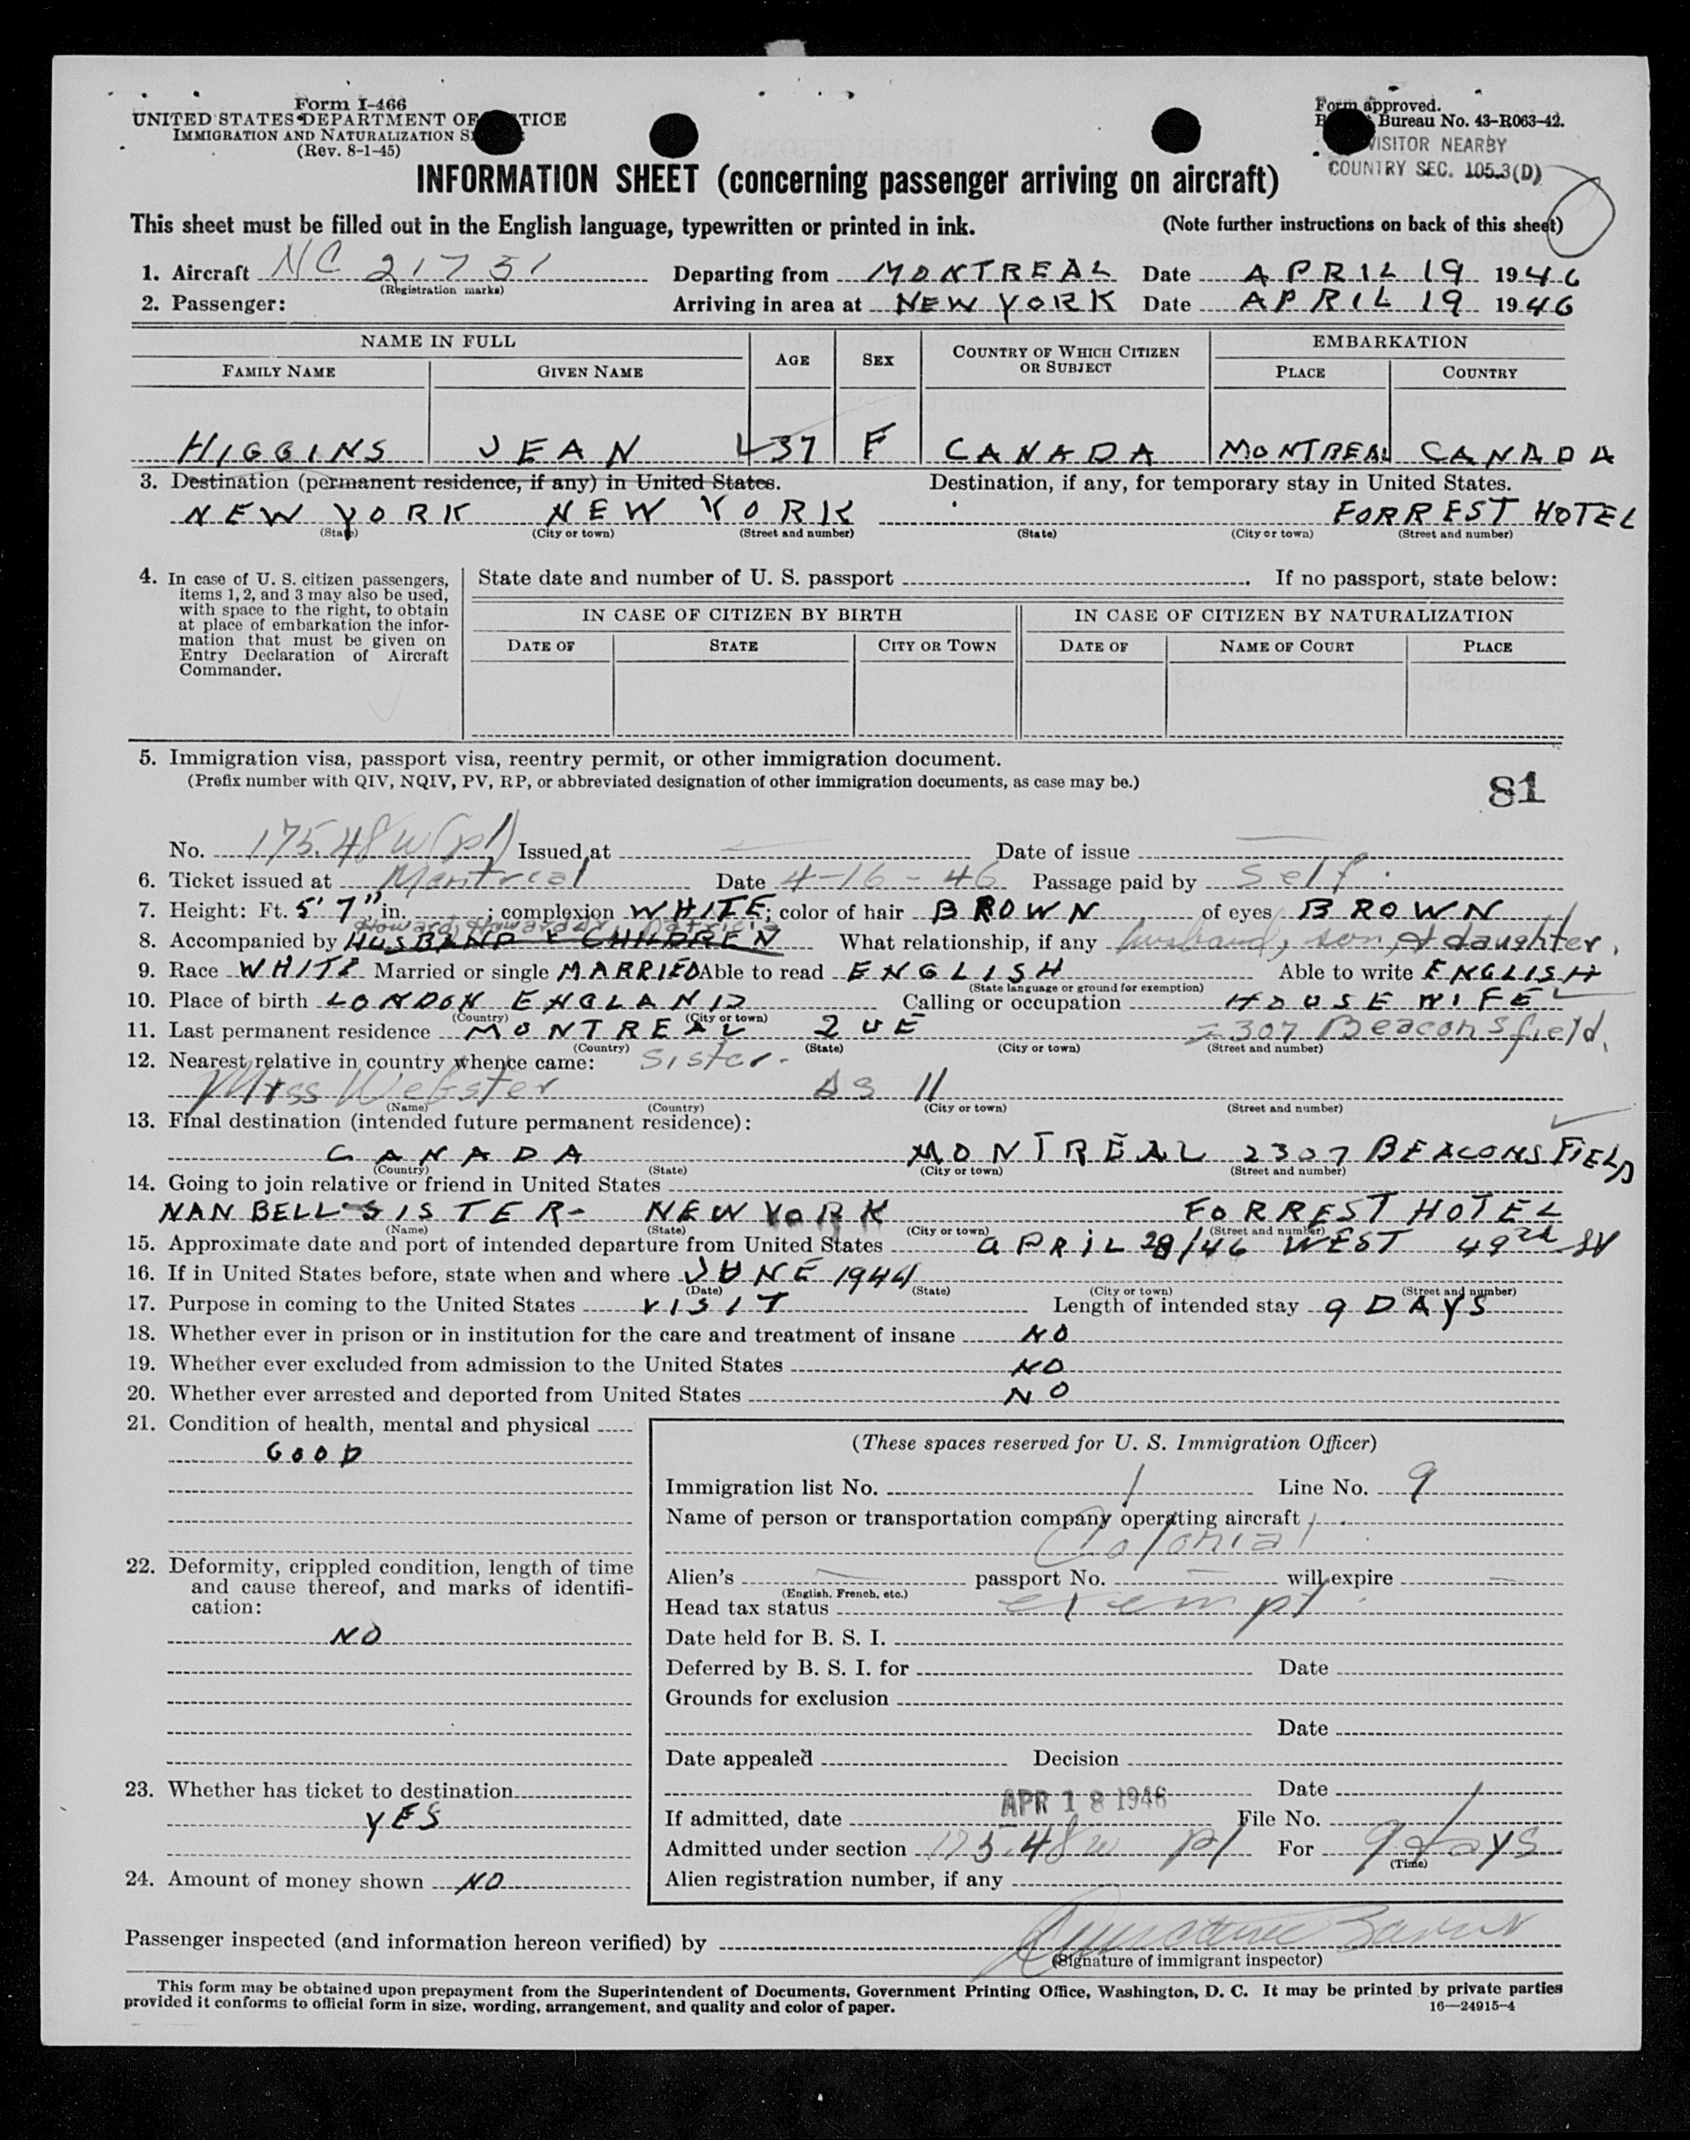 Form I-466
UNITED STATES DEPARTMENT OF TICE
IMMIGRATION AND NATURALIZATION S
(Rev. 8-1-45)
Form approved.
B Bureau No. 43-R063-42.
VISITOR NEARBY
COUNTRY SEC. 105.3(D)
INFORMATION SHEET (concerning passenger arriving on aircraft)
This sheet must be filled out in the English language, typewritten or printed in ink. (Note further instructions on back of this sheet)
1. Aircraft NC 21751 Departing from MONTREAL Date APRIL 19 1946
(Registration marks)
2. Passenger: Arriving in area at NEW YORK Date APRIL 19 1946
NAME IN FULL AGE SEX COUNTRY OF WHICH CITIZEN OR SUBJECT EMBARKATION
FAMILY NAME GIVEN NAME PLACE COUNTRY
HIGGINS JEAN 37 F CANADA MONTREAL CANADA
3. Destination (permanent residence, if any) in United States. Destination, if any, for temporary stay in United States.
NEW YORK NEW YORK FORREST HOTEL
(State) (City or town) (Street and number) (State) (City or town) (Street and number)
4. In case of U. S. citizen passengers, items 1, 2, and 3 may also be used, with space to the right, to obtain at place of embarkation the information that must be given on Entry Declaration of Aircraft Commander.
State date and number of U. S. passport . If no passport, state below:
IN CASE OF CITIZEN BY BIRTH IN CASE OF CITIZEN BY NATURALIZATION
DATE OF STATE CITY OR TOWN DATE OF NAME OF COURT PLACE
5. Immigration visa, passport visa, reentry permit, or other immigration document.
(Prefix number with QIV, NQIV, PV, RP, or abbreviated designation of other immigration documents, as case may be.)
81
No. 175.48w(pl) Issued at Date of issue
6. Ticket issued at Montreal Date 4-16-46 Passage paid by Self
7. Height: Ft. 5' 7", in. ; complexion WHITE; color of hair BROWN of eyes BROWN
Howard, Howard Jr, Patricia
8. Accompanied by HUSBAND & CHILDREN What relationship, if any husband, son, & daughter.
9. Race WHITE Married or single MARRIED Able to read ENGLISH Able to write ENGLISH
(State language or ground for exemption)
10. Place of birth LONDON ENGLAND Calling or occupation HOUSEWIFE
(Country) (City or town)
11. Last permanent residence MONTREAL QUE 2307 Beaconsfield.
(Country) (State) (City or town) (Street and number)
12. Nearest relative in country whence came: Sister.
Miss Webster As 11
(Name) (Country) (City or town) (Street and number)
13. Final destination (intended future permanent residence):
CANADA MONTREAL 2307 BEACONSFIELD
(Country) (State) (City or town) (Street and number)
14. Going to join relative or friend in United States
NAN BELL - SISTER - NEW YORK FORREST HOTEL
(Name) (State) (City or town) (Street and number)
15. Approximate date and port of intended departure from United States APRIL 28/46 WEST 49
16. If in United States before, state when and where JUNE 1944
(Date) (State) (City or town) (Street and number)
17. Purpose in coming to the United States VISIT Length of intended stay 9 DAYS
18. Whether ever in prison or in institution for the care and treatment of insane NO
19. Whether ever excluded from admission to the United States NO
20. Whether ever arrested and deported from United States NO
21. Condition of health, mental and physical
GOOD
22. Deformity, crippled condition, length of time and cause thereof, and marks of identification:
NO
23. Whether has ticket to destination
YES
24. Amount of money shown NO
(These spaces reserved for U. S. Immigration Officer)
Immigration list No. 1 Line No. 9
Name of person or transportation company operating aircraft
Colonial
Alien's passport No. will expire
(English, French, etc.)
Head tax status exempt
Date held for B. S. I.
Deferred by B. S. I. for Date
Grounds for exclusion
Date
Date appealed Decision
Date
If admitted, date APR 18 1946 File No.
Admitted under section 175.48w pl For 9 days
(Time)
Alien registration number, if any
Passenger inspected (and information hereon verified) by
(Signature of immigrant inspector)
This form may be obtained upon prepayment from the Superintendent of Documents, Government Printing Office, Washington, D. C. It may be printed by private parties
provided it conforms to official form in size, wording, arrangement, and quality and color of paper. 16—24915-4